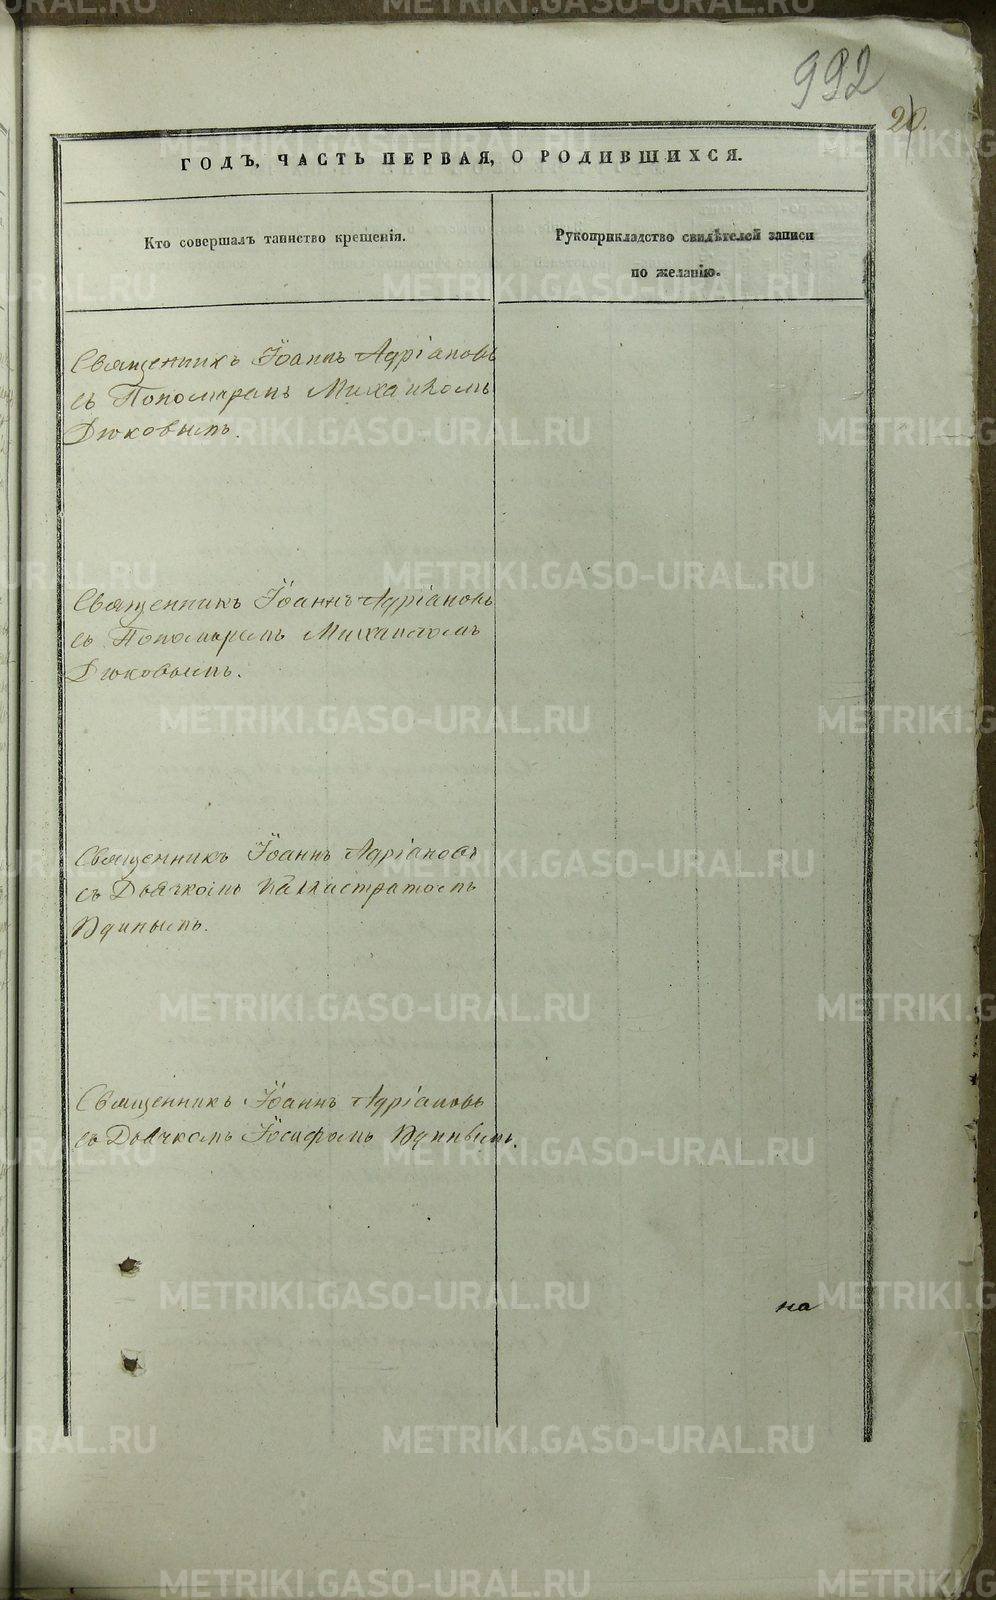 992
20.
ГОДЪ, ЧАСТЬ ПЕРВАЯ, О РОДИВШИХСЯ.
Кто совершалъ таинство крещенія.
Рукоприкладство свидѣтелей записи
по желанію.
Священникъ Іоаннъ Адріановъ
съ Пономаремъ Михаиломъ
Дюковымъ.
Священникъ Іоаннъ Адріановъ
съ Пономаремъ Михаиломъ
Дюковымъ.
Священникъ Іоаннъ Адріановъ
съ Дьячкомъ Каллистратомъ
Священникъ Іоаннъ Адріановъ
съ Дьячкомъ Іосифомъ
на
METRIKI.GASO-URAL.RU